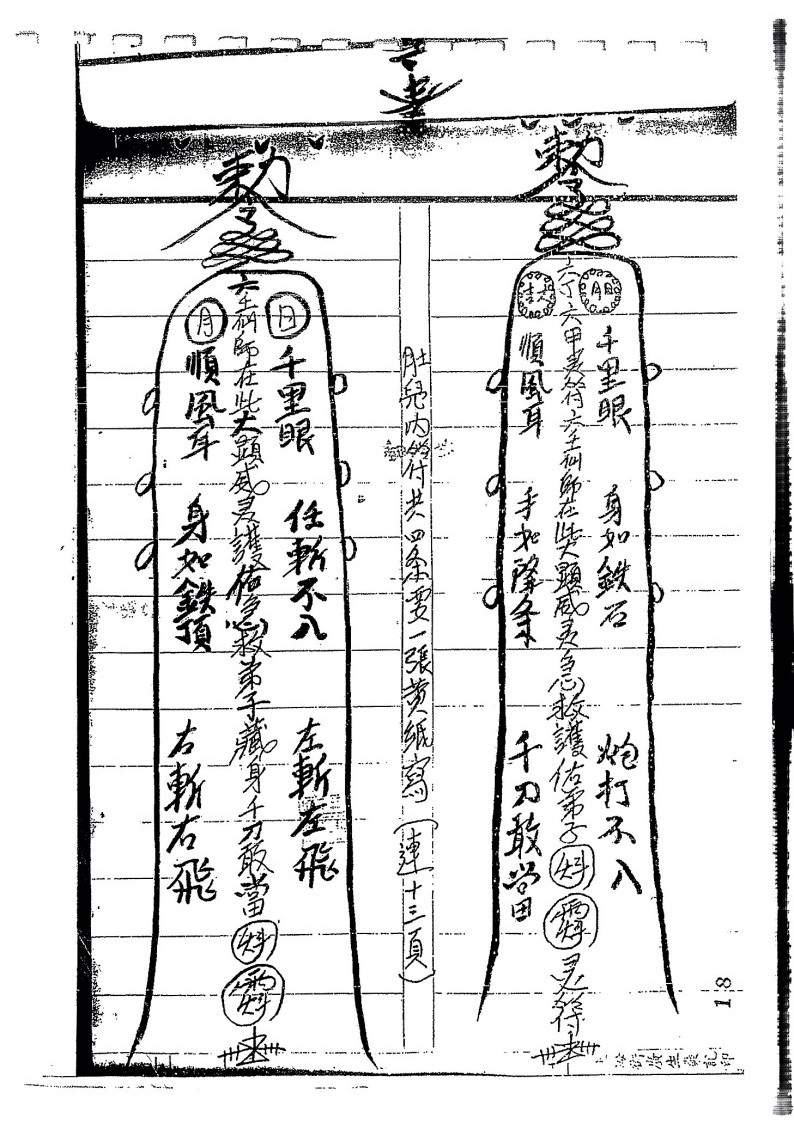 勅令
六丁六甲灵符六壬仙師在此大顕威灵急救護佑弟子
灵符
千里眼 身如鉄石 炮打不入
順風耳 手如降条 千刀敢当
肚兜內符共四条要一張黄紙寫(連十三頁)
勅令
六壬仙師在此大顕威灵護佑急救弟子藏身千刀敢當
日
千里眼 任斬不入 左斬左飛
月
順風耳 身如鉄頂 右斬右飛
18